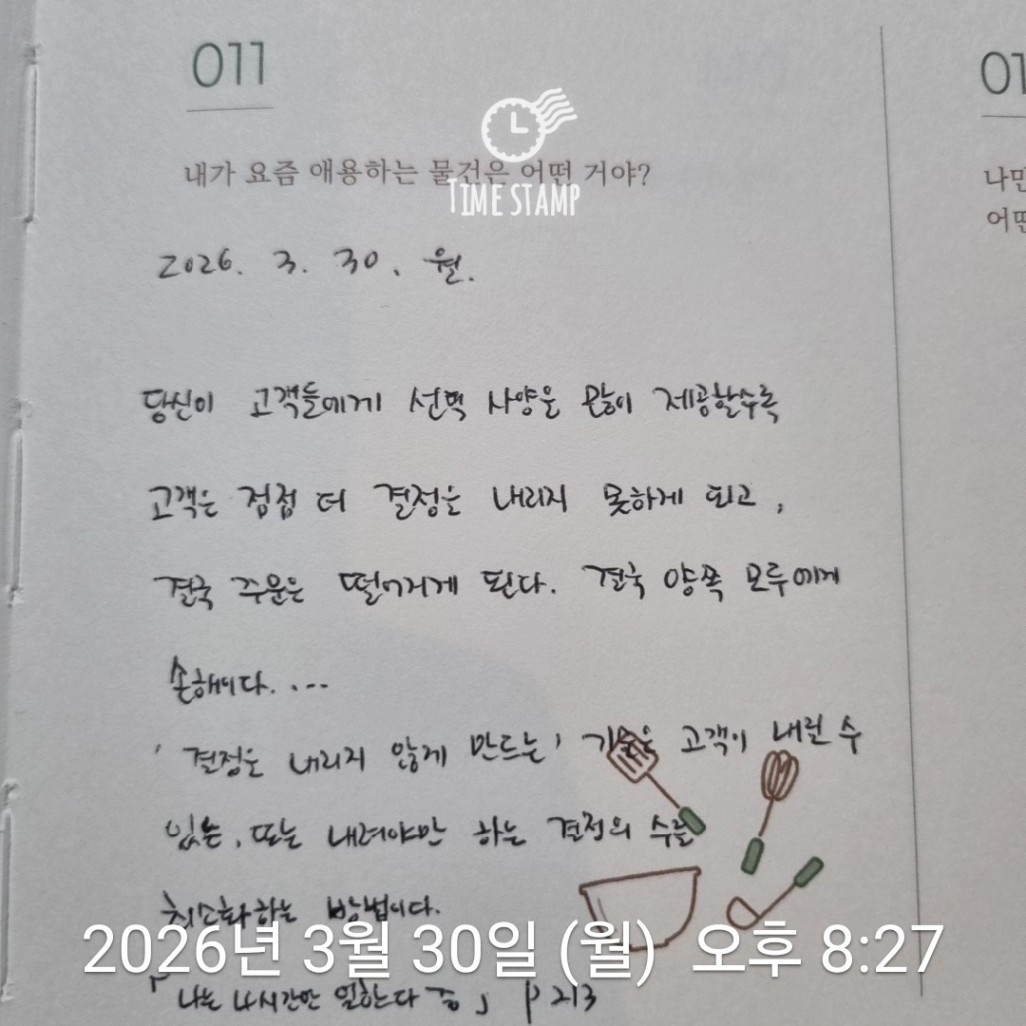 011
내가 요즘 애용하는 물건은 어떤 거야?
TIME STAMP
2026. 3. 30. 월.
당신이 고객들에게 선택 사양을 많이 제공할수록
고객은 점점 더 결정을 내리지 못하게 되고,
결국 주문은 떨어지게 된다. 결국 양쪽 모두에게
손해이다. ...
'결정을 내리지 않게 만드는' 기술은 고객이 내릴 수
있는, 또는 내려야만 하는 결정의 수를
최소화하는 방법이다.
2026년 3월 30일 (월) 오후 8:27
「나는 4시간만 일한다 중」 P 213
01
나만
어떤